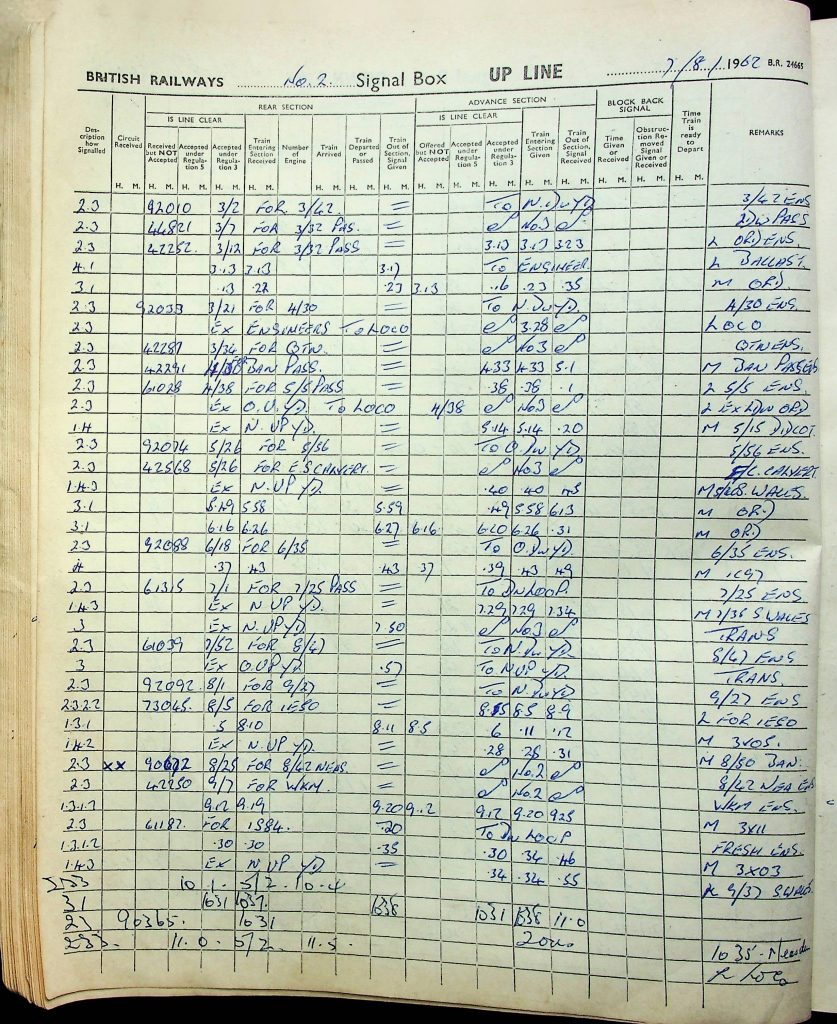 BRITISH RAILWAYS No. 2. Signal Box UP LINE 7/8/1962 B.R. 24665
REAR SECTION ADVANCE SECTION BLOCK BACK SIGNAL
IS LINE CLEAR IS LINE CLEAR
Description how Signalled Circuit Received Received but NOT Accepted Accepted under Regulation 5 Accepted under Regulation 3 Train Entering Section Received Number of Engine Train Arrived Train Departed or Passed Train Out of Section, Signal Given Offered but NOT Accepted Accepted under Regulation 5 Accepted under Regulation 3 Train Entering Section Given Train Out of Section, Signal Received Time Given or Received Obstruction Removed Signal Given or Received Time Train is ready to Depart REMARKS
H. M. H. M. H. M. H. M. H. M. H. M. H. M. H. M. H. M. H. M. H. M. H. M. H. M. H. M. H. M. H. M.
2.3 92010 3/2 FOR 3/42. = TO N. DW YD. 3/42 ENS
2.3 44821 3/7 FOR 3/32 PAS. = No3 PASS
2.3 42252. 3/12 FOR 3/32 PASS = 3.13 3.13 3.23 L ORD ENS.
4.1 3.13 3.13 3.17 TO ENGINEER. L BALLAST.
3.1 .13 .22 .23 3.13 .16 .23 .35 M ORD.
2.3 92033 3/21 FOR 4/30 = TO N. DW YD. 4/30 ENS.
2.3 EX ENGINEERS TO LOCO 3.28 LOCO
2.3 42287 3/34 FOR QTN. = No3 QTN ENS.
2.3 42291 BAN PASS. = 4.33 4.33 5.1 M BAN PASS
2.3 61028 4/38 FOR 5/5 PASS = .38 .38 .1 L 5/5 ENS.
2.3 EX O.U.YD. TO LOCO 4/38 No3 L EX ORD
1.4 EX N. UP YD. = 5.14 5.14 .20 M 5/15 DIDCOT.
2.3 92074 5/26 FOR 5/56 = TO O. DW YD. 5/56 ENS.
2.3 42568 5/26 FOR = No3 CALVERT.
1.4.3 EX N. UP YD. = .40 .40 S. WALES.
3.1 5.49 5.58 5.59 .49 5.58 6.13 M ORD
3.1 6.16 6.26 6.27 6.16 6.20 6.26 .31 M ORD
2.3 92088 6/18 FOR 6/35 = TO O. DW YD. 6/35 ENS.
4 .37 .43 .43 37 .39 .43 .49 M 1C97
2.3 61315 7/1 FOR 7/25 PASS = TO DN LOOP. 7/25 ENS
1.4.3 EX N UP YD. = 7.29 7.29 7.34 M 7/36 S WALES
3 EX N. UP YD. 7.50 No3 TRANS
2.3 61039 7/52 FOR 8/47 = TO N. DW YD. 8/47 ENS
3 EX O. UP YD. .57 TO N UP YD. TRANS.
2.3 92092. 8/1 FOR 9/27 = TO N. DW YD. 9/27 ENS
2.3.2.2 73045. 8/5 FOR 1E50 = 8.5 8.5 8.9 L FOR 1E50
1.3.1 .5 8.10 8.11 8.5 6 .11 .12 M 3X05.
1.4.2 EX N. UP YD. = .28 .28 .31 M 8/50 BAN.
2.3 XX 90672 8/25 FOR 8/42 NEAS. = No.2 8/42 NEA ENS
2.3 42250 9/7 FOR WKM. = No.2 WKM ENS.
1.3.1.2 9.12 9.19 9.20 9.12 9.12 9.20 9.25 M 3X11
2.3 61187. FOR 1S84. .20 TO DN LOOP FRESH ENS.
1.3.1.2 .30 .30 .35 .30 .34 .46 M 3X03
1.4.3 EX N UP YD. = .34 .34 .55 9/37 S. WALES
10.1. 5/2. 10.4
3.1 1031 1037. 1038 1031 1038 11.0
90365. 1031 1035.
11.0. 5/2. 11.5.